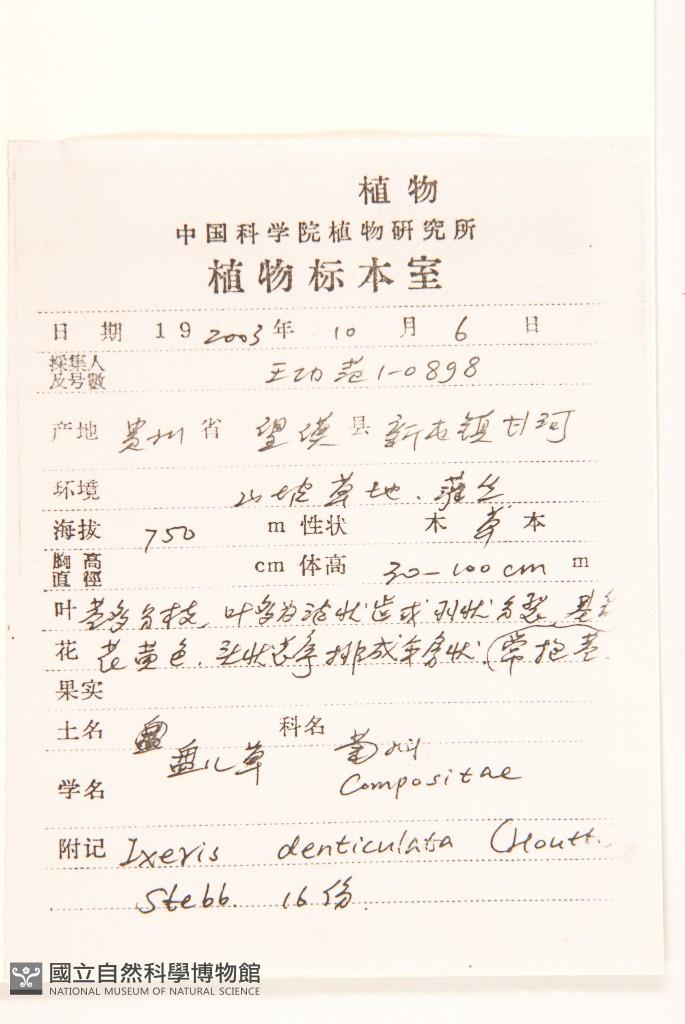 植物
中国科学院植物研究所
植物标本室
日 期 19 2003 年 10 月 6 日
採集人
及号數 王功范 1-0898
产地 贵州 省 望谟 县 新屯镇甘珂
环境 山坡草地、灌丛
海拔 750 m 性状 木 草 本
胸高
直徑 cm 体高 30-100cm m
叶 茎多分枝, 叶
花 花黄色, 头状花序排成伞房状 (常抱茎
果实
土名 盘儿草 科名 菊科
Compositae
学名
附记 Ixeris denticulata (Houtt.
Stebb. 16份.
國立自然科學博物館
NATIONAL MUSEUM OF NATURAL SCIENCE